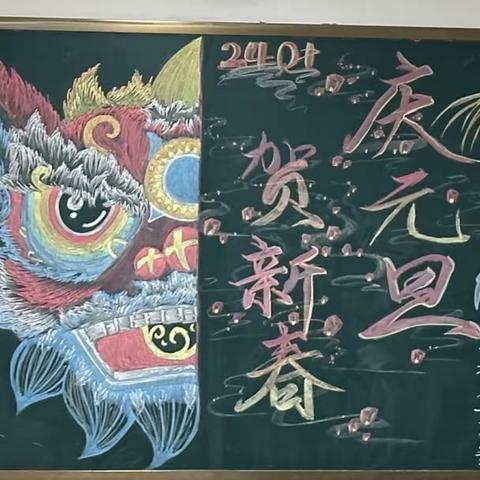 庆元旦
贺新春